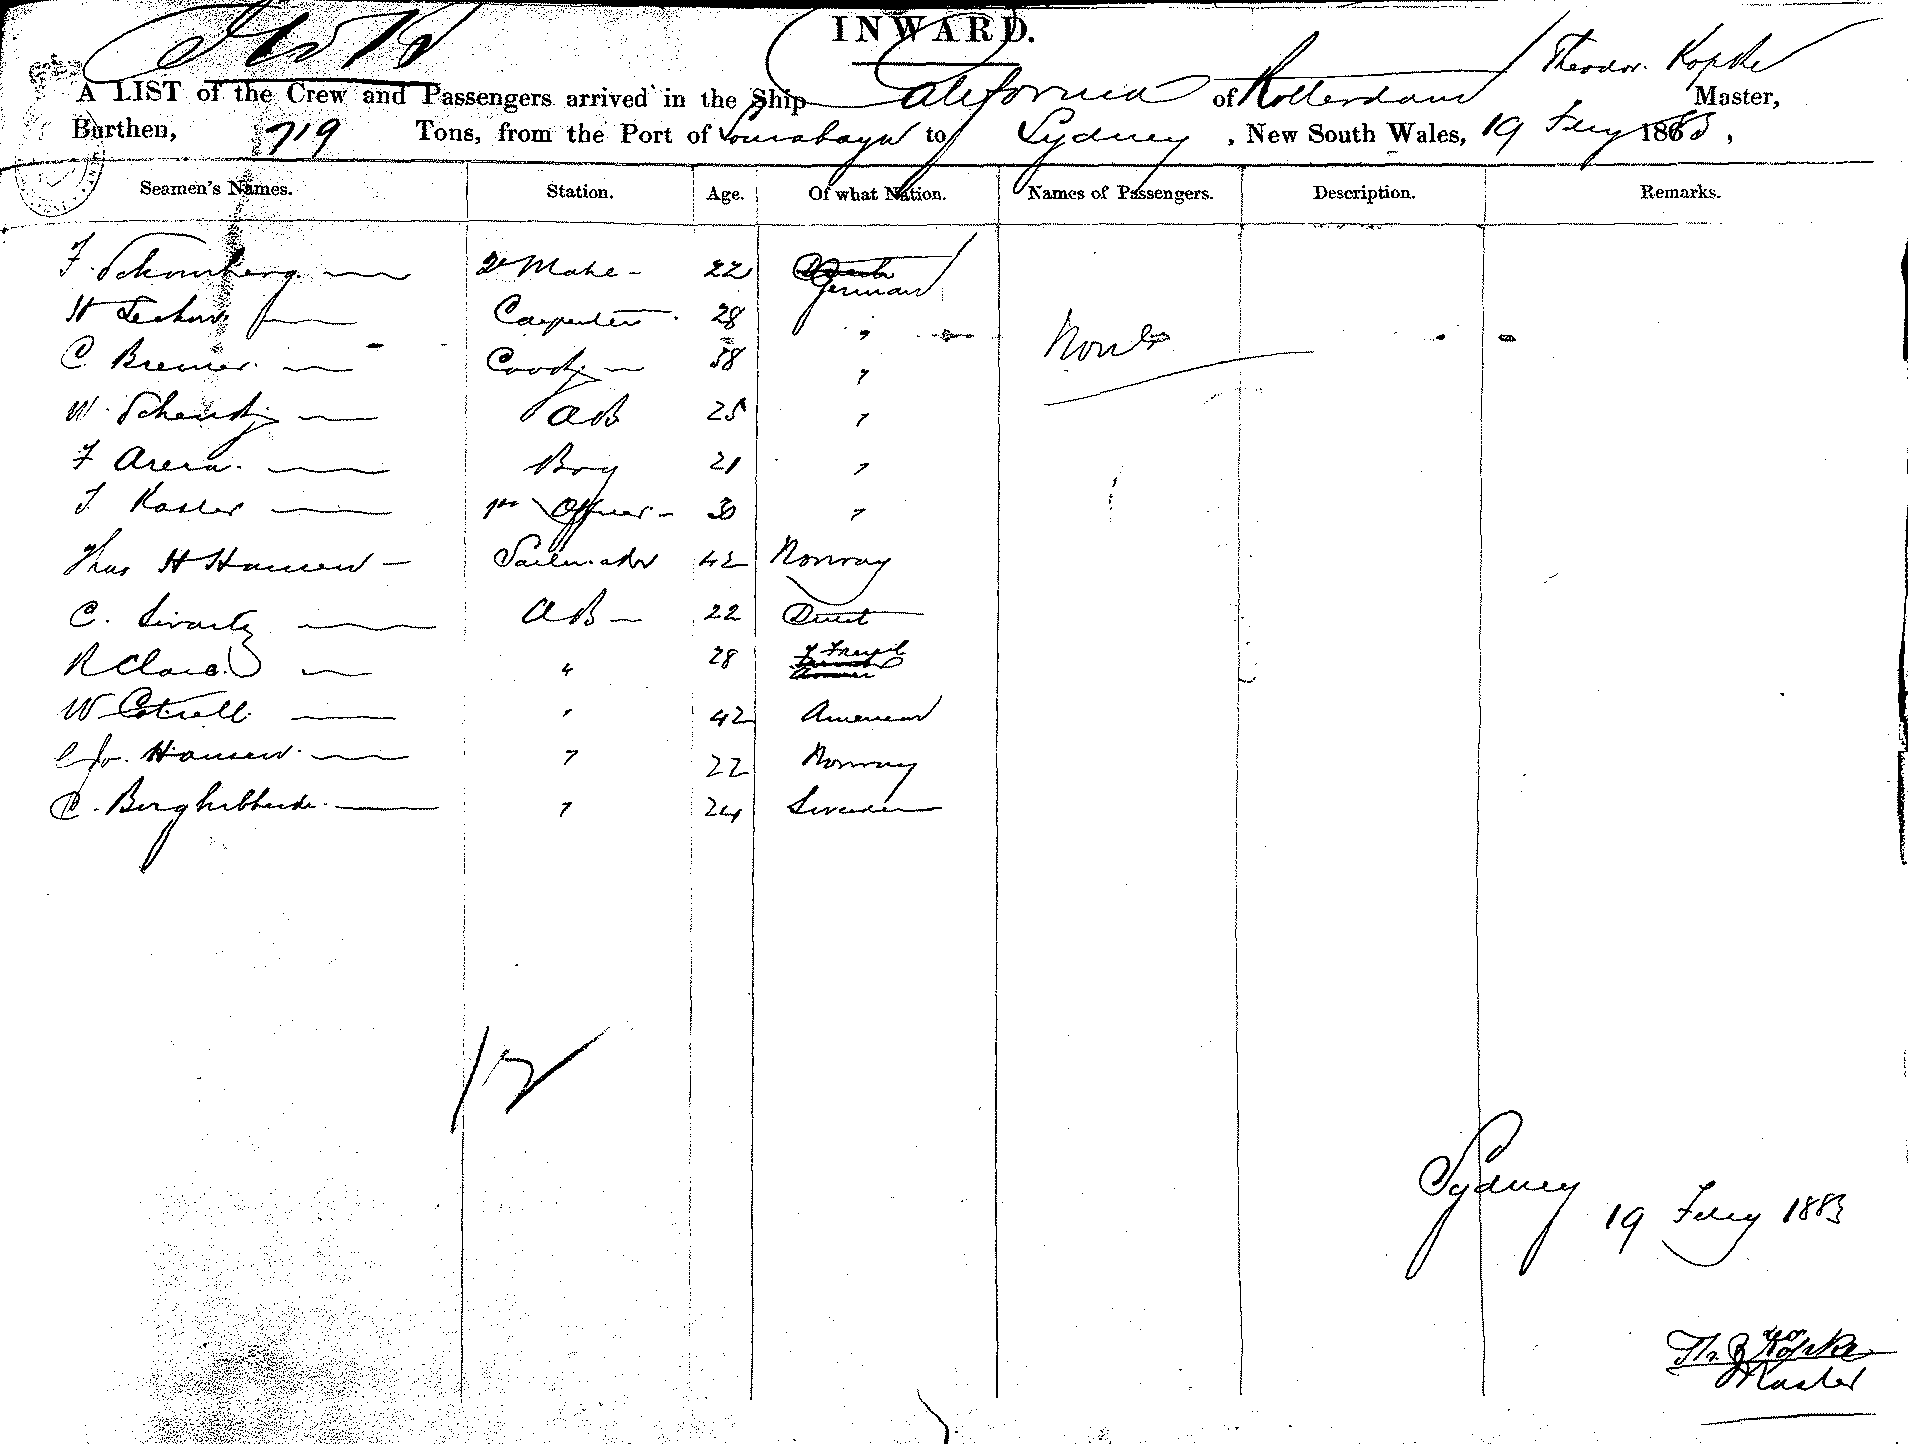 INWARD.
A LIST of the Crew and Passengers arrived in the Ship California of Rotterdam Theodor. Kopke Master,
Burthen, 719 Tons, from the Port of Sourabaya to Sydney, New South Wales, 19 Feby 1883,
Seamen's Names. Station. Age. Of what Nation. Names of Passengers. Description. Remarks.
F. Schomberg 2d Mate 22 German
H Carpenter 28 " None
C. Bremer Cook 38 "
W. AB 25 "
F Arera Boy 21 "
Officer 30 "
Thos H Hansen Sailmaker 42 Norway
C. Swartz AB 22
R Clare " 28
W Cotrell " 42 American
Hansen " 22 Norway
C. " 24 Sweden
12
Sydney
19 Feby 1883
Kopke
Master